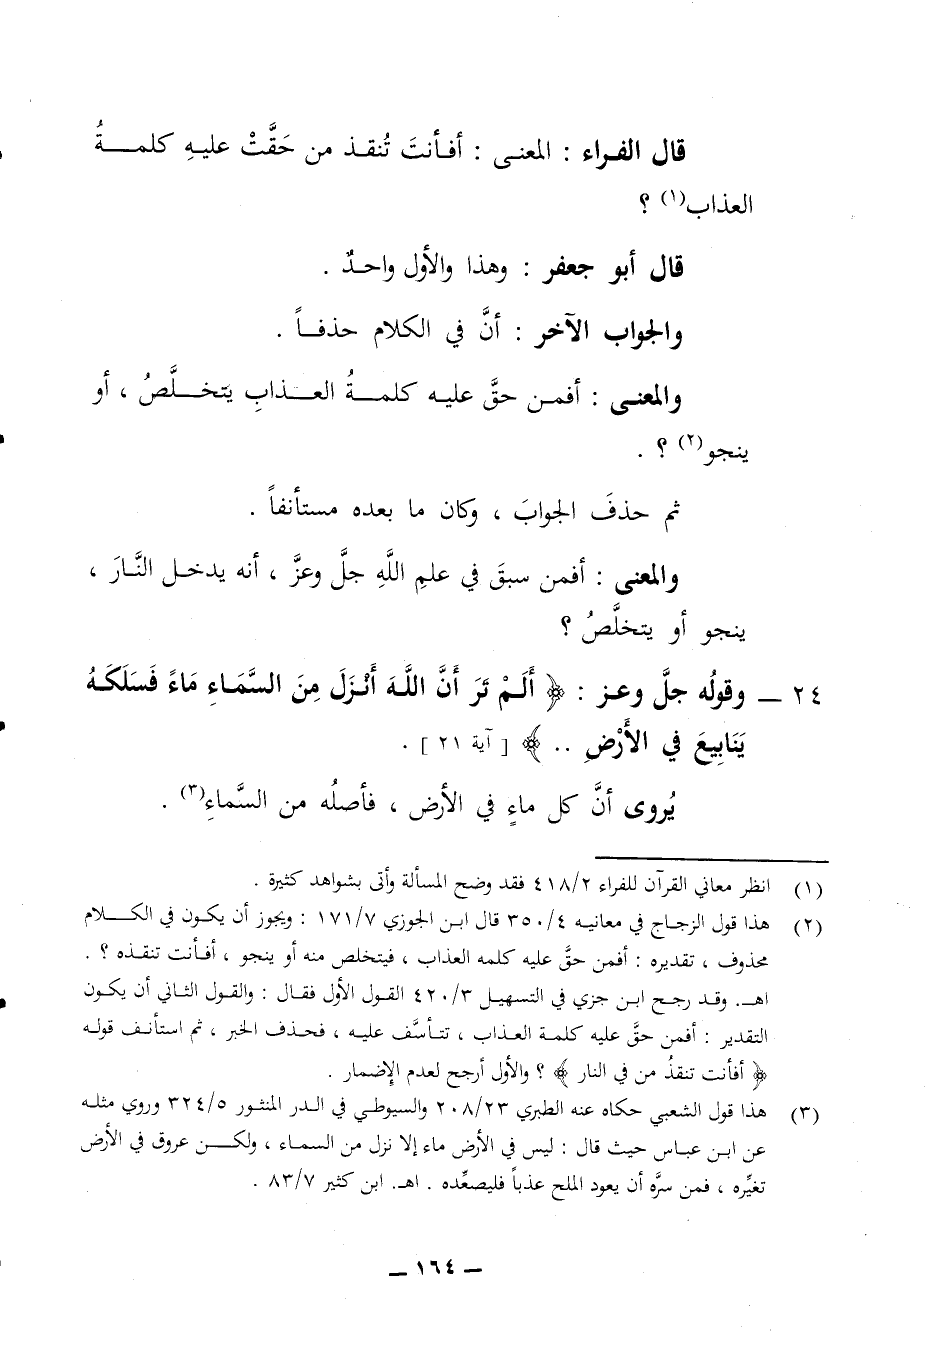 قال الفراء : المعنى : أفأنتَ تُنقذ من حَقَّتْ عليهِ كلمةُ
العذاب(١) ؟
قال أبو جعفر : وهذا والأول واحدٌ .
والجواب الآخر : أنَّ في الكلام حذفاً .
والمعنى : أفمن حقَّ عليه كلمةُ العذابِ يتخلَّصُ ، أو
ينجو(٢) ؟ .
ثم حذفَ الجوابَ ، وكان ما بعده مستأنفاً .
والمعنى : أفمن سبقَ في علمِ اللَّهِ جلَّ وعزَّ ، أنه يدخل النَّارَ ،
ينجو أو يتخلَّصُ ؟
٢٤ ــ وقولُه جلَّ وعز : ﴿ أَلَمْ تَرَ أَنَّ اللَّهَ أَنْزَلَ مِنَ السَّمَاءِ مَاءً فَسَلَكَهُ
يَنَابِيعَ فِي الأَرْضِ .. ﴾ [ آية ٢١ ] .
يُروى أنَّ كل ماءٍ في الأرض ، فأصلُه من السَّماءِ(٣) .
(١) انظر معاني القرآن للفراء ٤١٨/٢ فقد وضح المسألة وأتى بشواهد كثيرة .
(٢) هذا قول الزجاج في معانيه ٣٥٠/٤ قال ابن الجوزي ١٧١/٧ : ويجوز أن يكون في الكلام
محذوف ، تقديره : أفمن حقَّ عليه كلمه العذاب ، فيتخلص منه أو ينجو ، أفأنت تنقذه ؟ .
اهـ. وقد رجح ابن جزي في التسهيل ٤٢٠/٣ القول الأول فقال : والقول الثاني أن يكون
التقدير : أفمن حقَّ عليه كلمة العذاب ، تتأسَّف عليه ، فحذف الخبر ، ثم استأنف قوله
﴿ أفأنت تنقذُ من في النار ﴾ ؟ والأول أرجح لعدم الإضمار .
(٣) هذا قول الشعبي حكاه عنه الطبري ٢٠٨/٢٣ والسيوطي في الدر المنثور ٣٢٤/٥ وروي مثله
عن ابن عباس حيث قال : ليس في الأرض ماء إلا نزل من السماء ، ولكن عروق في الأرض
تغيِّره ، فمن سرَّه أن يعود الملح عذباً فليصعِّده . اهـ. ابن كثير ٨٣/٧ .
ــ ١٦٤ ــ